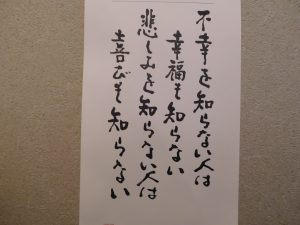 不幸を知らない人は
幸福も知らない
悲しみを知らない人は
喜びも知らない